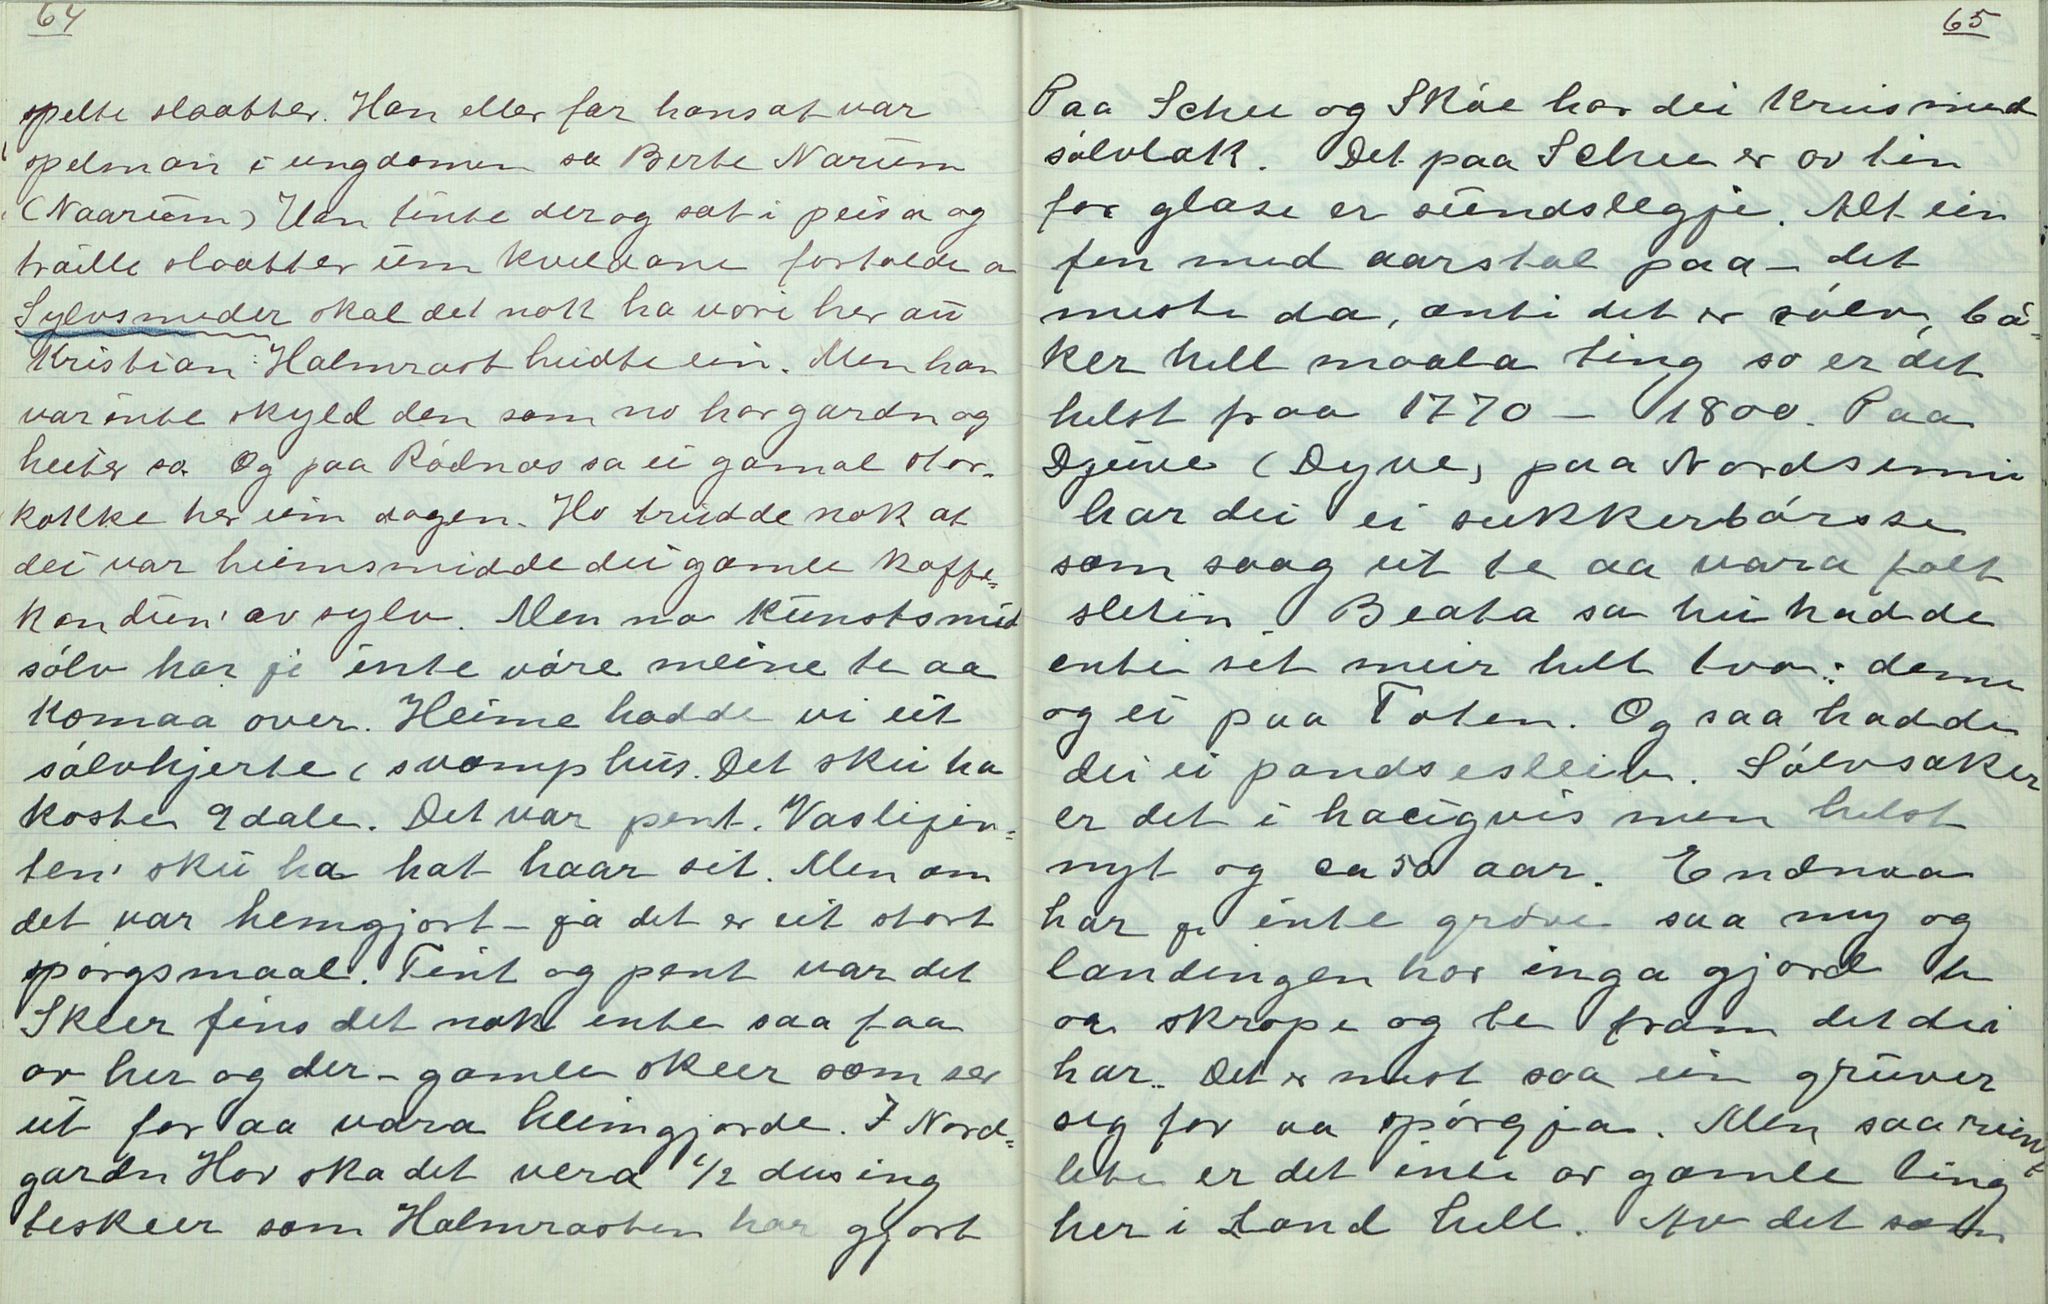 64
spelte slaatter. Han eller far hans at var
spelman i ungdomen sa Berte Narum
(Naarum) Han tente der og sat i peisa og
traille slaatter um kveldane fortalde a
Sylvsmeder skal det nok ha vøri her au
Kristian Halmrast heidte ein. Men han
var inte skyld den som no har gardn og
heiter sa. Og paa Rødnæs sa ei gamal stor-
kokke her um dagen. Ho trudde nok at
dei var heimsmidde dei gamle kaffe-
kandun' av sylv. Men no kunstsmid
sølv har je inte vøre meine te aa
komaa over. Heime hadde vi eit
sølvhjerte (svamphus. Det sku ha
koste 9 dale. Det var pent. Vaslijen-
ten' sku ha hat haar sit. Men om
det var hemgjort - ja det er eit stort
spørgsmaal. Fint og pent var det
Skeer fins det nok ente saa faa
av her og der - gamle skeer som ser
ut for aa vara heimgjorde. I Nord-
gardn Hov ska det vera 1/2 dusing
teskeer som Halmrasten har gjort
65
Paa Schee og Skøe har dei Krus med
sølvlok. Det paa Schee er av tin
for glase er sundslegje. Alt ein
fen med aarstal paa - det
meste da, enti det er sølv, bø-
ker hell maala ting so er det
helst fraa 1770 - 1800. Paa
Djuve (Dyve) paa Nordsinni
har dei ei sukkerbørsse
som saag ut te aa vara fælt
sletin. Beata sa hu hadde
enti set meir hell tvo: denne
og ei paa Toten. Og saa hadde
dei ei pandseslein. Sølvsaker
er det i haugvis men helst
nyt og ca 50 aar. Endnaa
har je inte grøve saa my og
landingen har inga gjord te
aa skrape og te fram det dei
har. Det er mest saa ein gruver
seg for aa spørgja. Men saa
lite er det inte av gamle ting
her i Land hell. Av det som